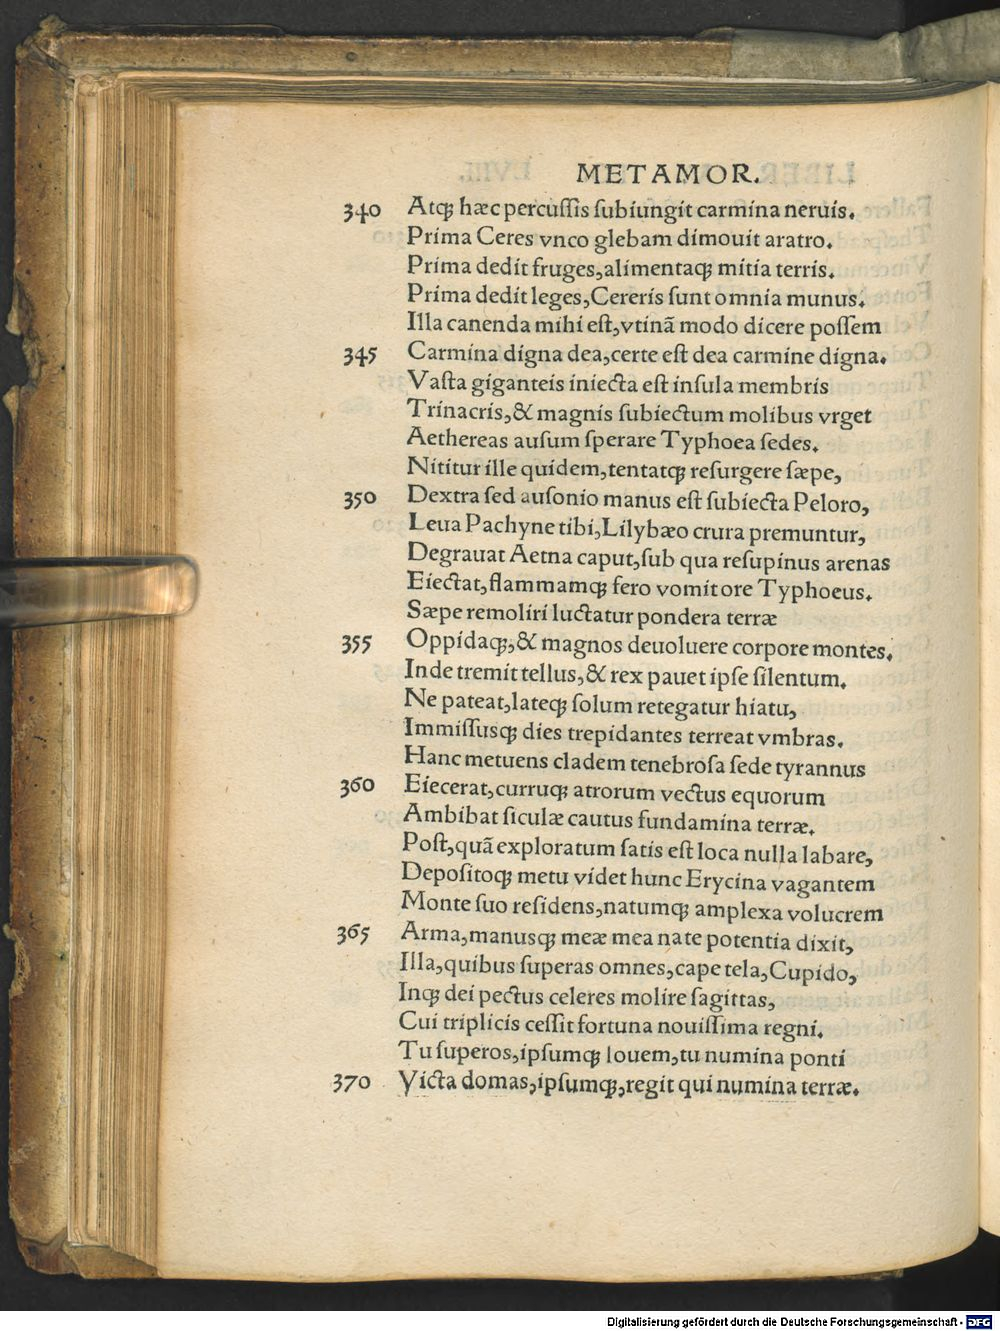 METAMOR.
340 Atqꝫ hæc percuſſis ſubiungit carmina neruis.
Prima Ceres vnco glebam dimouit aratro.
Prima dedit fruges,alimentaqꝫ mitia terris.
Prima dedit leges,Cereris ſunt omnia munus.
Illa canenda mihi eſt,vtinã modo dicere poſſem
345 Carmina digna dea,certe eſt dea carmine digna.
Vaſta giganteis iniecta eſt inſula membris
Trinacris,& magnis ſubiectum molibus vrget
Aethereas auſum ſperare Typhoea ſedes.
Nititur ille quidem,tentatqꝫ reſurgere ſæpe,
350 Dextra ſed auſonio manus eſt ſubiecta Peloro,
Leua Pachyne tibi,Lilybæo crura premuntur,
Degrauat Aetna caput,ſub qua reſupinus arenas
Eiectat,flammamqꝫ fero vomit ore Typhoeus.
Sæpe remoliri luctatur pondera terræ
355 Oppidaqꝫ,& magnos deuoluere corpore montes.
Inde tremit tellus,& rex pauet ipſe ſilentum.
Ne pateat,lateqꝫ ſolum retegatur hiatu,
Immiſſusqꝫ dies trepidantes terreat vmbras.
Hanc metuens cladem tenebroſa ſede tyrannus
360 Eiecerat,curruqꝫ atrorum vectus equorum
Ambibat ſiculæ cautus fundamina terræ.
Poſt,quã exploratum ſatis eſt loca nulla labare,
Depoſitoqꝫ metu videt hunc Erycina vagantem
Monte ſuo reſidens,natumqꝫ amplexa volucrem
365 Arma,manusqꝫ meæ mea nate potentia dixit,
Illa,quibus ſuperas omnes,cape tela,Cupido,
Inqꝫ dei pectus celeres molire ſagittas,
Cui triplicis ceſſit fortuna nouiſſima regni.
Tu ſuperos,ipſumqꝫ Iouem,tu numina ponti
370 Victa domas,ipſumqꝫ,regit qui numina terræ.
Digitalisierung gefördert durch die Deutsche Forschungsgemeinschaft - DFG